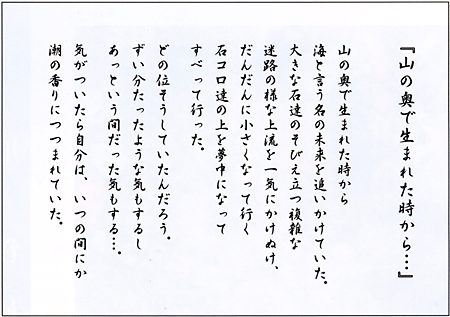 『山の奥で生まれた時から…』
山の奥で生まれた時から
海と言う名の未来を追いかけていた。
大きな石達のそびえ立つ複雑な
迷路の様な上流を一気にかけぬけ、
だんだんに小さくなって行く
石コロ達の上を夢中になって
すべって行った。
どの位そうしていたんだろう。
ずい分たったような気もするし
あっという間だった気もする…。
気がついたら自分は、いつの間にか
潮の香りにつつまれていた。